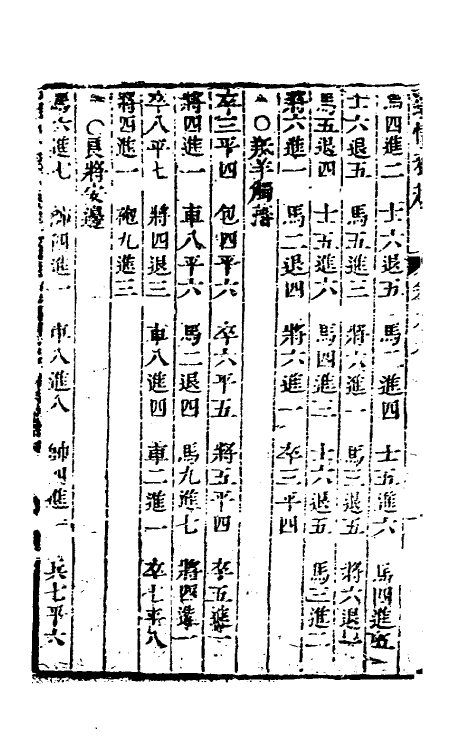 馬四進二 士六退五 馬二進四 士五進六 馬四進五
士六退五 馬五進三 將六進一 馬三退五 將六退一
馬五退四 士五進六 馬四進三 士六退五 馬三進二
將六進一 馬二退四 將六進一 卒三平四
○羝羊觸藩
卒三平四 包四平六 卒六平五 將五平四 卒五進一
將四進一 車八平六 馬二退四 馬九進七 將四進一
卒八平七 將四退三 車八進四 車二進一 卒七平八
將四進一 炮九進三
○良將安邊
馬六進七 帥四進一 車八進八 帥四進一 兵七平六